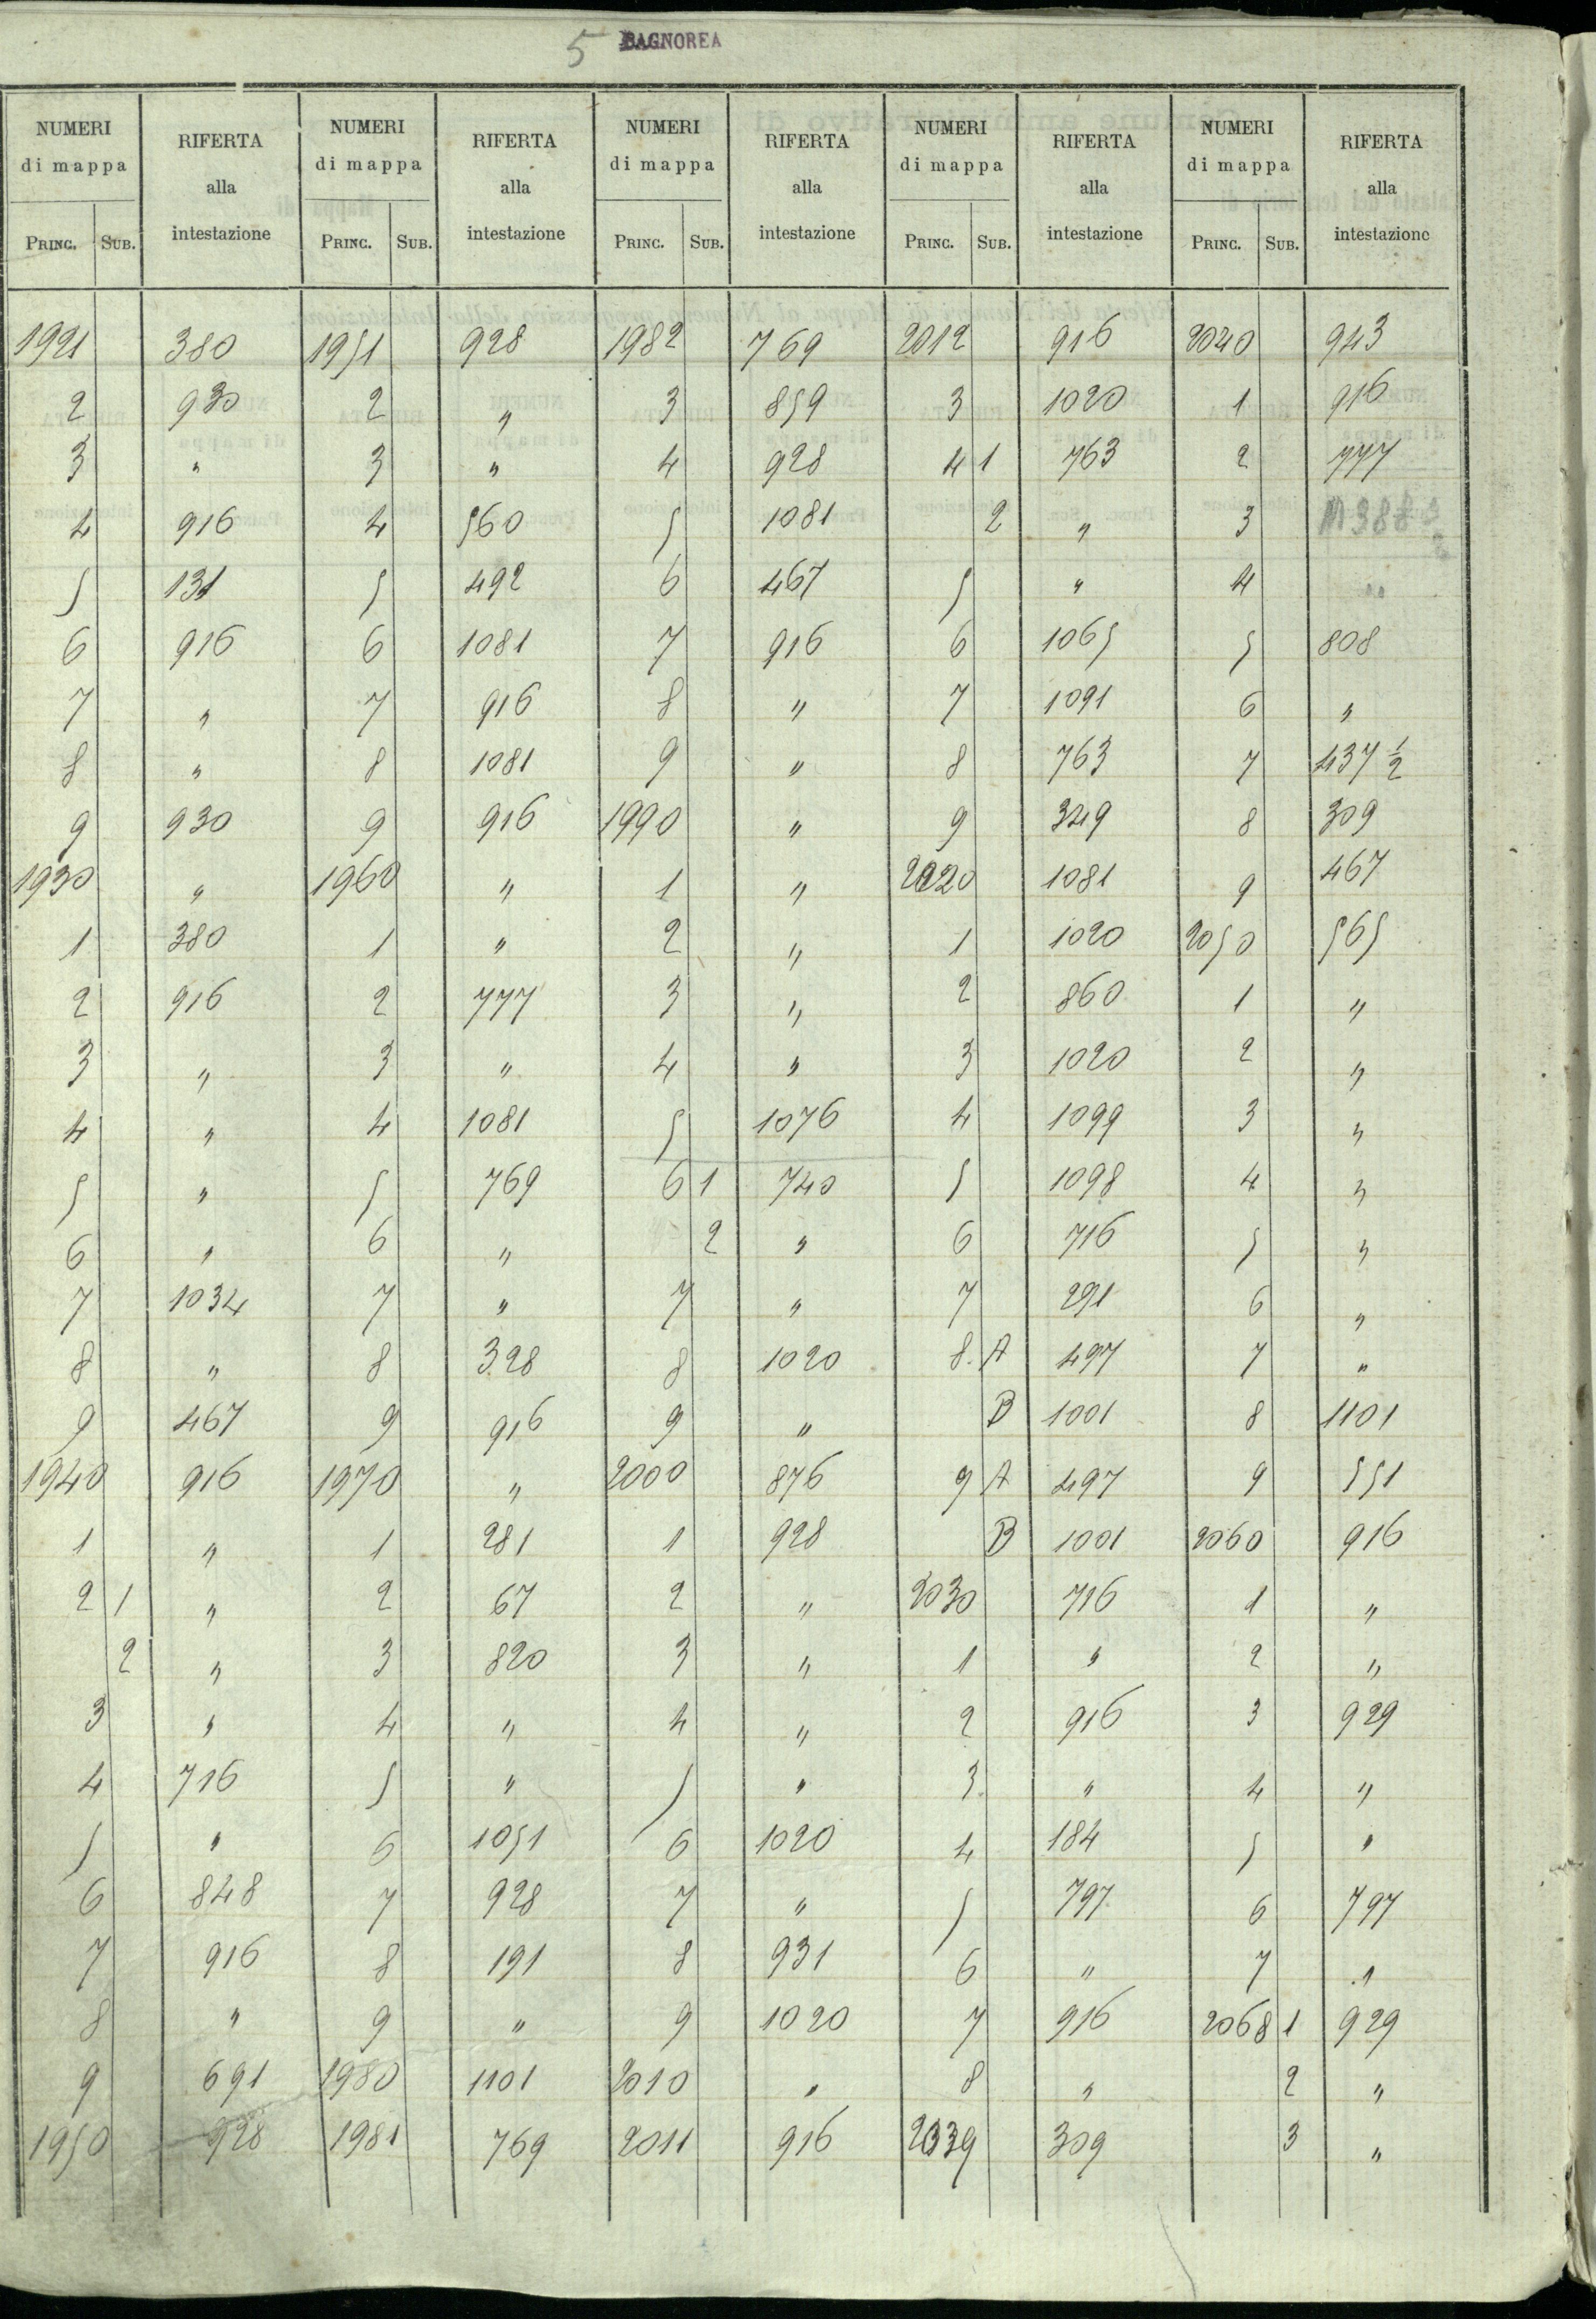 5 BAGNOREA
NUMERI di mappa RIFERTA alla intestazione NUMERI di mappa RIFERTA alla intestazione NUMERI di mappa RIFERTA alla intestazione NUMERI di mappa RIFERTA alla intestazione NUMERI di mappa RIFERTA alla intestazione
PRINC. SUB. PRINC. SUB. PRINC. SUB. PRINC. SUB. PRINC. SUB.
1921 380 1951 928 1982 769 2012 916 2040 943
2 930 2 " 3 859 3 1020 1 916
3 " 3 " 4 928 4 1 763 2 777
4 916 4 560 5 1081 2 " 3
5 131 5 492 6 467 5 " 4 "
6 916 6 1081 7 916 6 1065 5 808
7 " 7 916 8 " 7 1091 6 "
8 " 8 1081 9 " 8 763 7 437 1/2
9 930 9 916 1990 " 9 349 8 309
1930 " 1960 " 1 " 2020 1081 9 467
1 380 1 " 2 " 1 1020 2050 565
2 916 2 777 3 " 2 860 1 "
3 " 3 " 4 " 3 1020 2 "
4 " 4 1081 5 1076 4 1099 3 "
5 " 5 769 6 1 740 5 1098 4 "
6 " 6 " 2 " 6 716 5 "
7 1034 7 " 7 " 7 291 6 "
8 " 8 328 8 1020 8. A 497 7 "
9 467 9 916 9 " B 1001 8 1101
1940 916 1970 " 2000 876 9 A 497 9 551
1 " 1 281 1 928 B 1001 2060 916
2 1 " 2 67 2 " 2030 716 1 "
2 " 3 820 3 " 1 " 2 "
3 " 4 " 4 " 2 916 3 929
4 716 5 " 5 " 3. " 4 "
5 " 6 1051 6 1020 4 184 5 "
6 848 7 928 7 " 5 797 6 797
7 916 8 191 8 931 6 " 7 "
8 " 9 " 9 1020 7 916 2068 1 929
9 691 1980 1101 2010 " 8 " 2 "
1950 928 1981 769 2011 916 2039 309 3 "